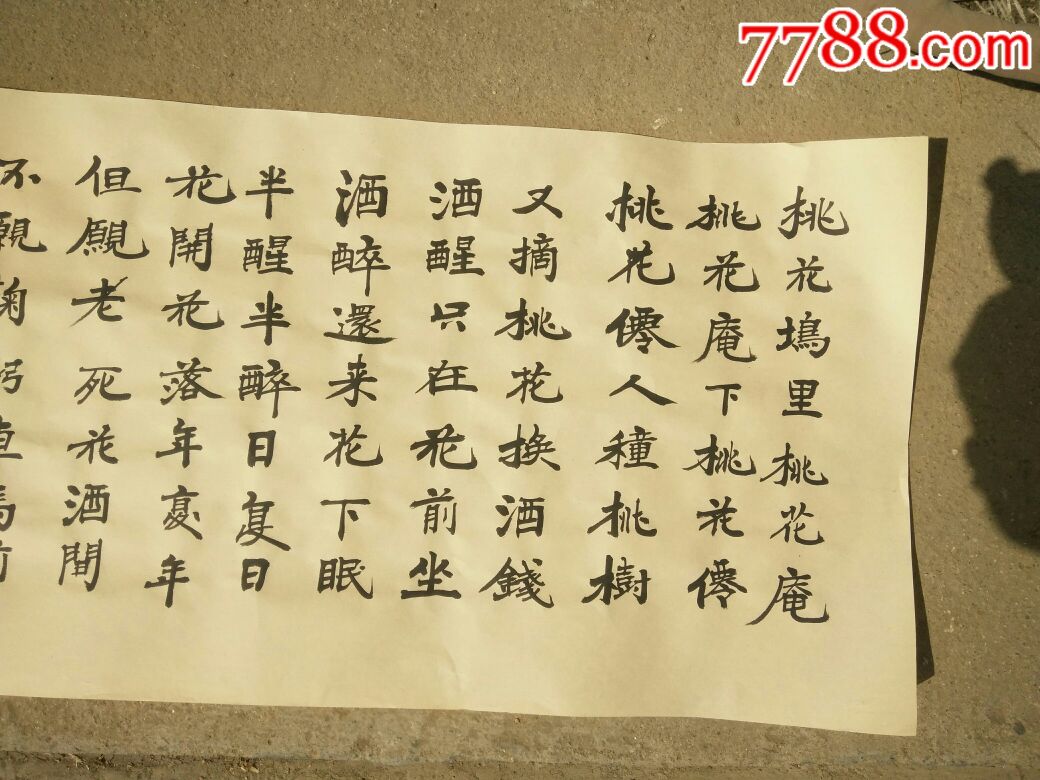 7788.com
桃花塢里桃花庵
桃花庵下桃花僊
桃花僊人種桃樹
又摘桃花換酒錢
酒醒只在花前坐
酒醉還来花下眠
半醒半醉日复日
花開花落年复年
但願老死花酒間
不願鞠躬車馬前